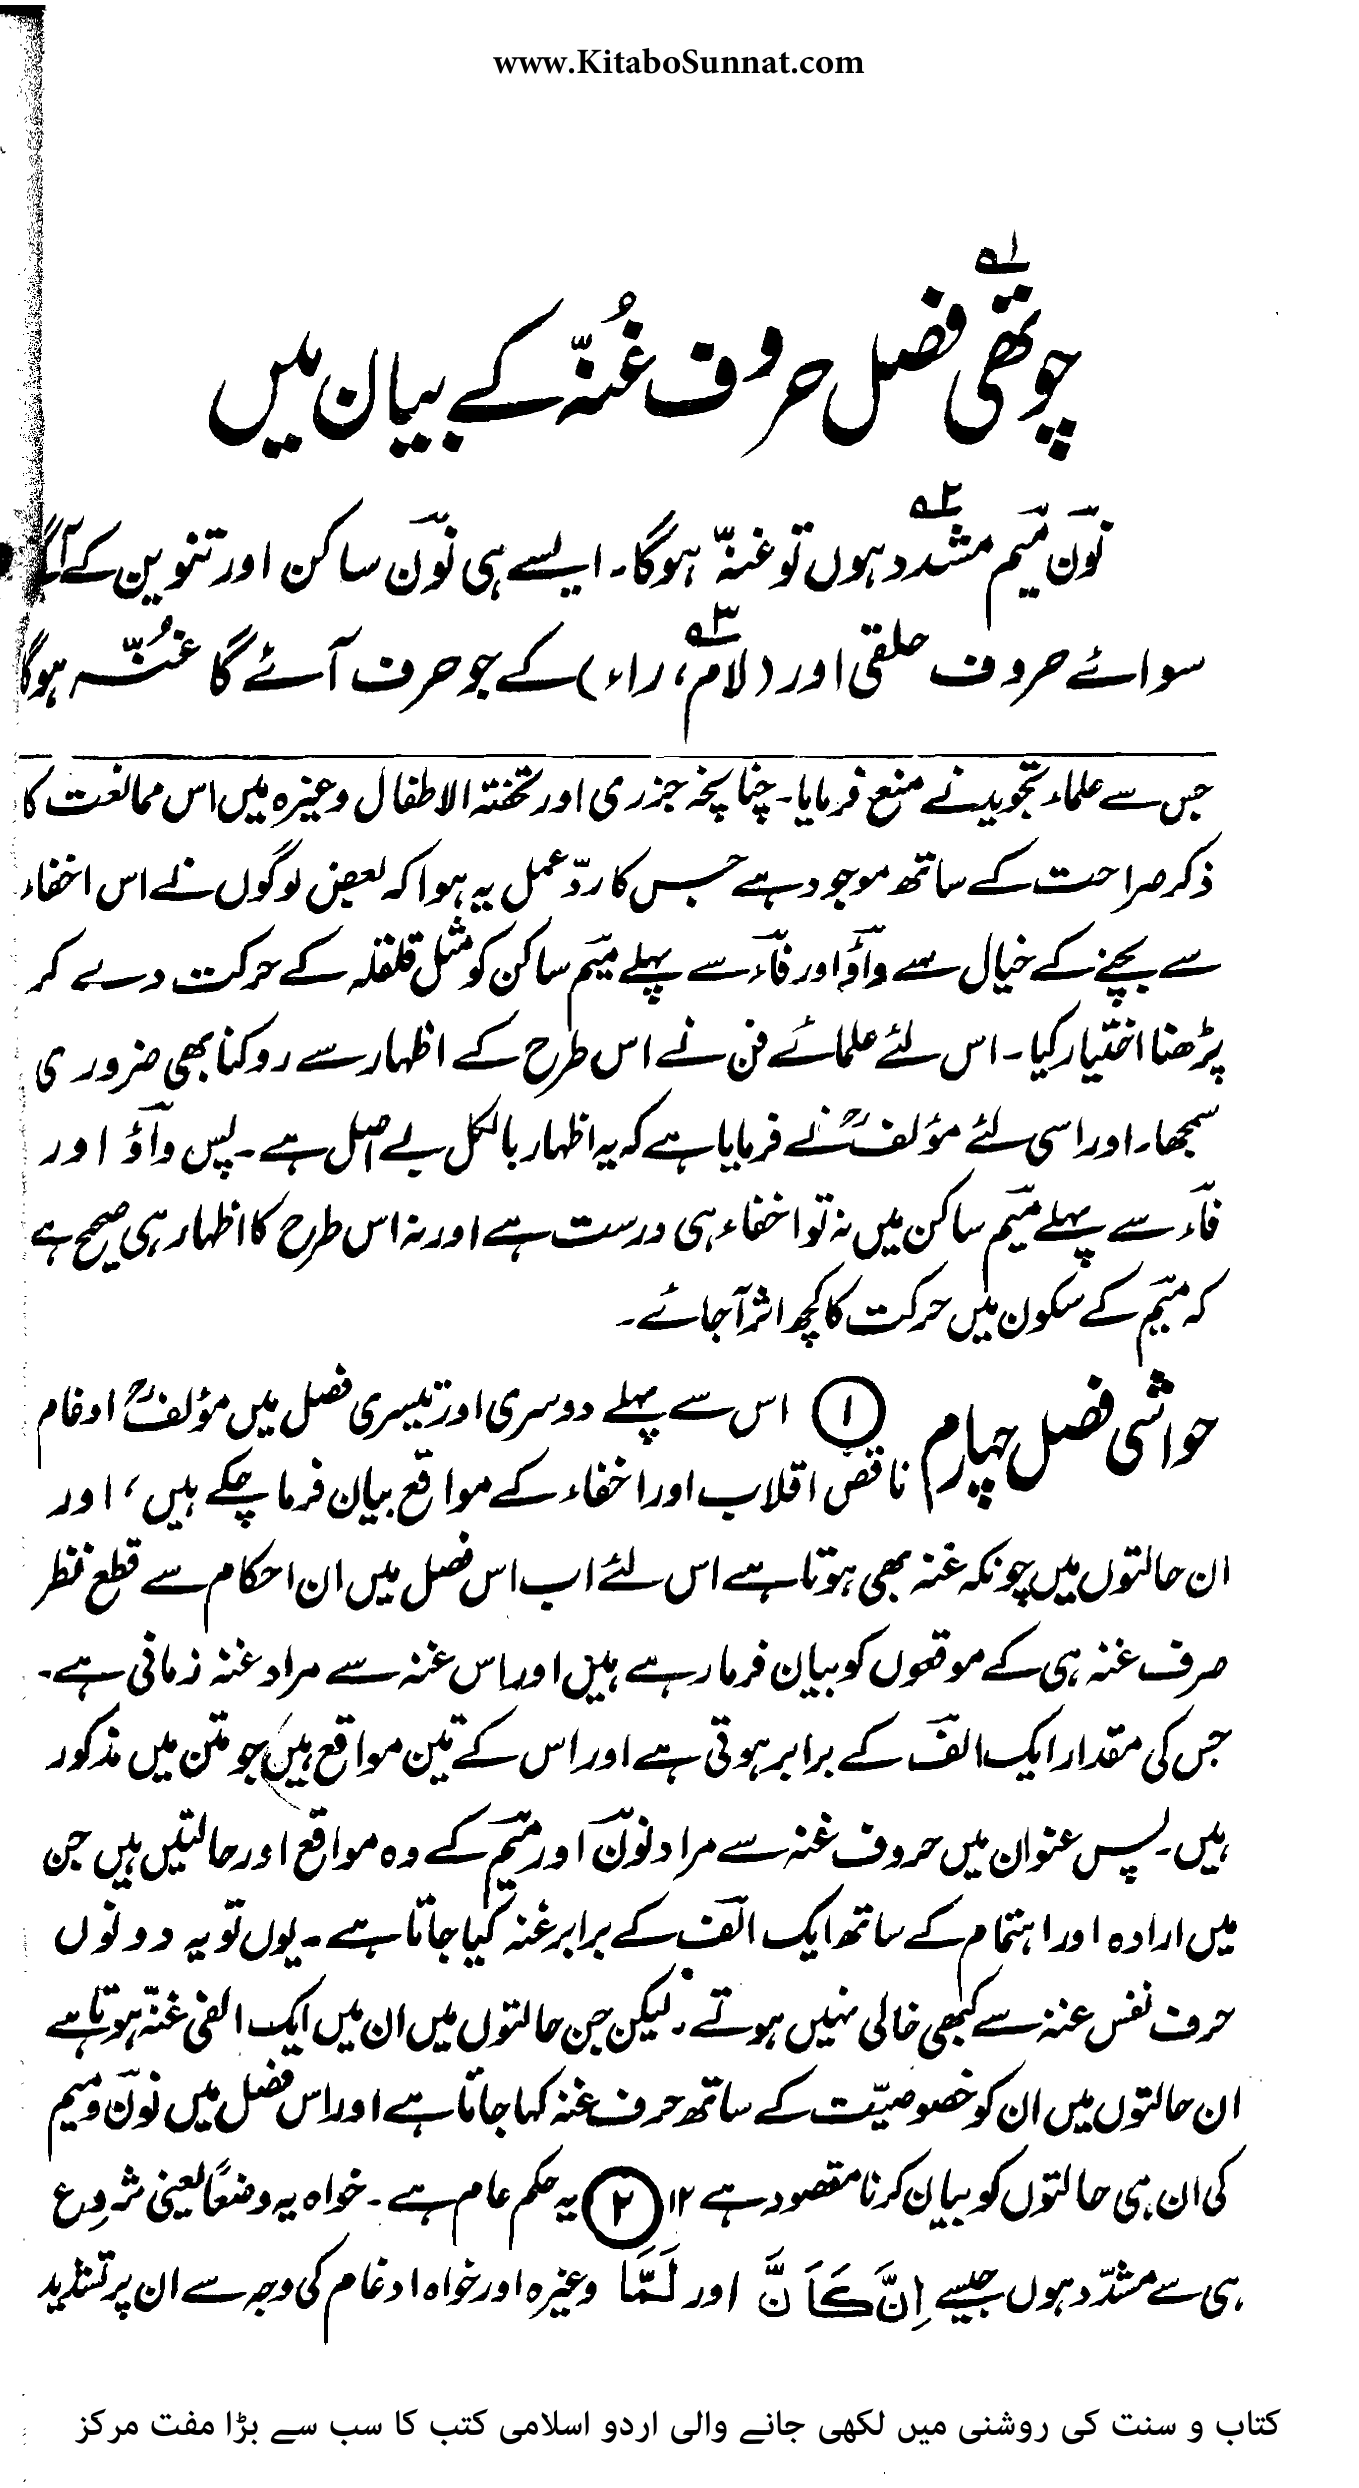 www.KitaboSunnat.com
چوتھی ۱؎ فصل حروف غُنّہ کے بیان میں
نون میم مشدد ۲؎ ہوں تو غنہّ ہوگا۔ ایسے ہی نون ساکن اور تنوین کے آگے
سوائے حروف حلقی اور (لام، ۳؎ راء) کے جو حرف آئے گا غُنّہ ہوگا
جس سے علماء تجوید نے منع فرمایا۔ چنانچہ جزری اور تحفتہ الاطفال وغیرہ میں اس ممانعت کا
ذکر صراحت کے ساتھ موجود ہے جس کا ردّ عمل یہ ہوا کہ بعض لوگوں نے اس اخفاء
سے بچنے کے خیال سے واؤ اور فاء سے پہلے میم ساکن کو مثل قلقلہ کے حرکت دے کر
پڑھنا اختیار کیا۔ اس لئے علمائے فن نے اس طرح کے اظہار سے روکنا بھی ضروری
سمجھا۔ اور اسی لئے مؤلفؒ نے فرمایا ہے کہ یہ اظہار بالکل بے اصل ہے۔ پس واؤ اور
فاء سے پہلے میم ساکن میں نہ تو اخفاء ہی درست ہے اور نہ اس طرح کا اظہار ہی صحیح ہے
کہ میم کے سکون میں حرکت کا کچھ اثر آجائے۔
حواشی فصل چہارم ① اس سے پہلے دوسری اور تیسری فصل میں مؤلفؒ ادغام
ناقص اقلاب اور اخفاء کے مواقع بیان فرما چکے ہیں، اور
ان حالتوں میں چونکہ غنہ بھی ہوتا ہے اس لئے اب اس فصل میں ان احکام سے قطع نظر
صرف غنہ ہی کے موقعوں کو بیان فرما رہے ہیں اور اس غنہ سے مراد غنہ زمانی ہے۔
جس کی مقدار ایک الف کے برابر ہوتی ہے اور اس کے تین مواقع ہیں جو متن میں مذکور
ہیں۔ پس عنوان میں حروف غنہ سے مراد نون اور میم کے وہ مواقع اور حالتیں ہیں جن
میں ارادہ اور اہتمام کے ساتھ ایک الف کے برابر غنہ کیا جاتا ہے۔ یوں تو یہ دونوں
حرف نفس غنہ سے کبھی خالی نہیں ہوتے۔ لیکن جن حالتوں میں ان میں ایک الفی غنہّ ہوتا ہے
ان حالتوں میں ان کو خصوصیّت کے ساتھ حرف غنہ کہا جاتا ہے اور اس فصل میں نون و میم
کی ان ہی حالتوں کو بیان کرنا مقصود ہے ۱۲ ② یہ حکم عام ہے۔ خواہ یہ وضعاً یعنی شروع
ہی سے مشدّد ہوں جیسے اِنَّ کَاَنَّ اور لَمَّا وغیرہ اور خواہ ادغام کی وجہ سے ان پر تشدید
کتاب و سنت کی روشنی میں لکھی جانے والی اردو اسلامی کتب کا سب سے بڑا مفت مرکز